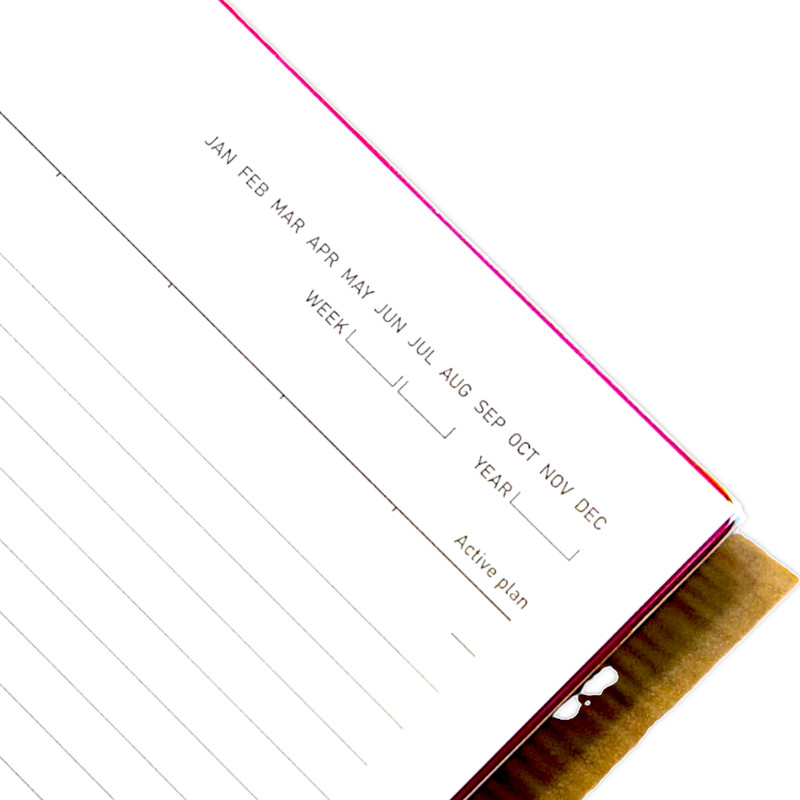 JAN FEB MAR APR MAY JUN JUL AUG SEP OCT NOV DEC
WEEK YEAR
Active plan